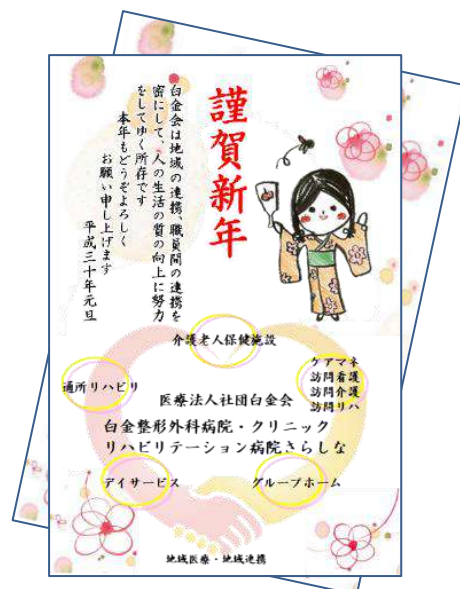 謹賀新年
白金会は地域の連携、職員間の連携を
密にして、人の生活の質の向上に努力
をしてゆく所存です
本年もどうぞよろしく
お願い申し上げます
平成三十年元旦
介護老人保健施設
通所リハビリ
ケアマネ
訪問看護
訪問介護
訪問リハ
医療法人社団白金会
白金整形外科病院・クリニック
リハビリテーション病院さらしな
デイサービス
グループホーム
地域医療・地域連携